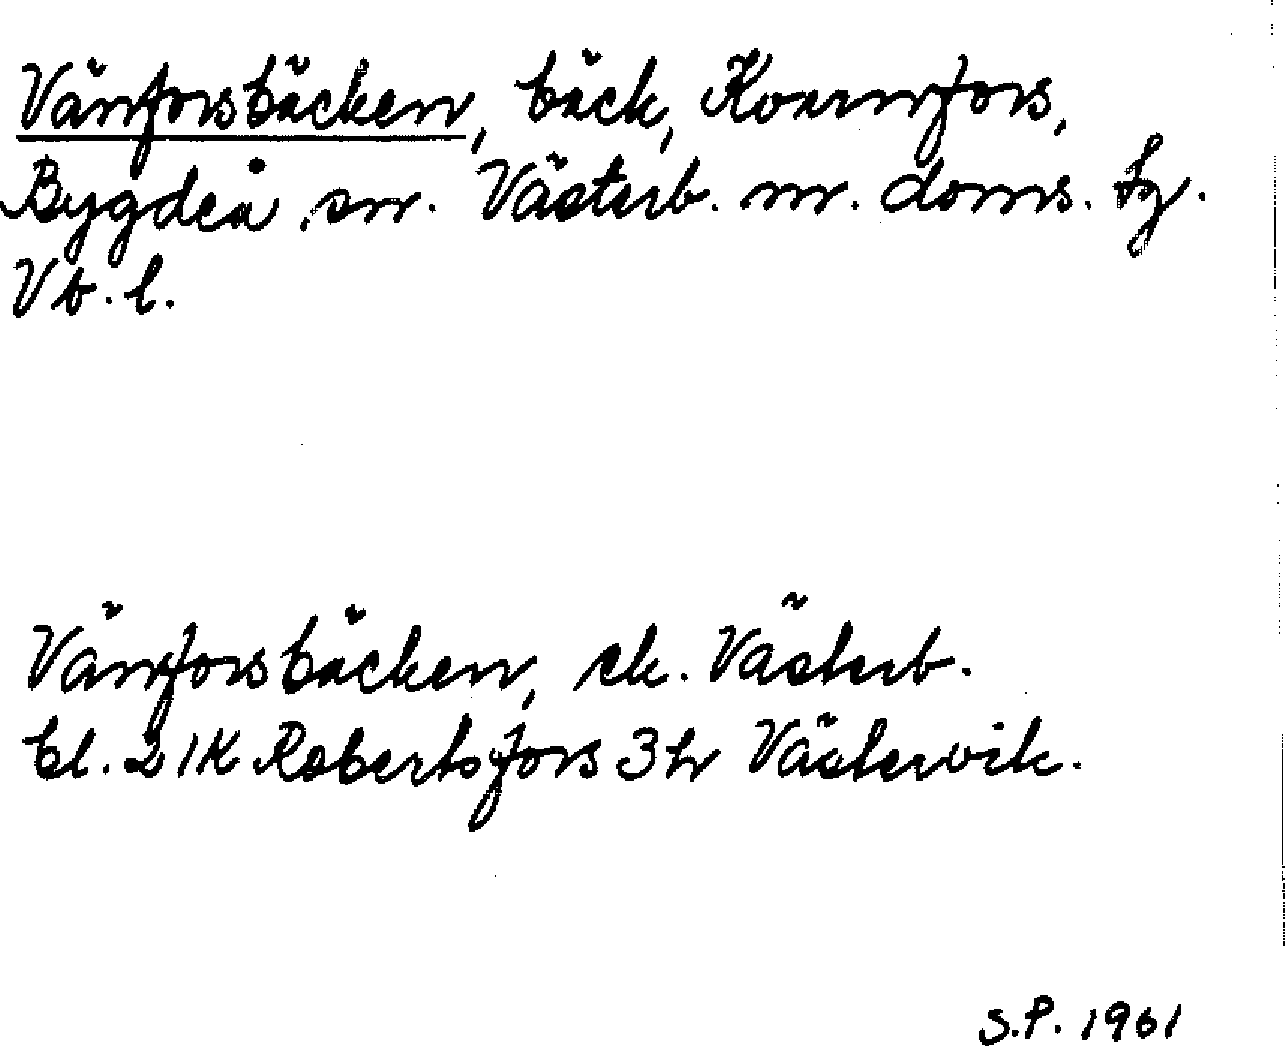 Vänforsbäcken, bäck, Kvarnfors,
Bygdeå sn. Västerb. n. doms. tg.
Vb. l.
Vänforsbäcken, ek. Västerb.
bl. 21K Robertsfors 3h Västervik.
S.P. 1961